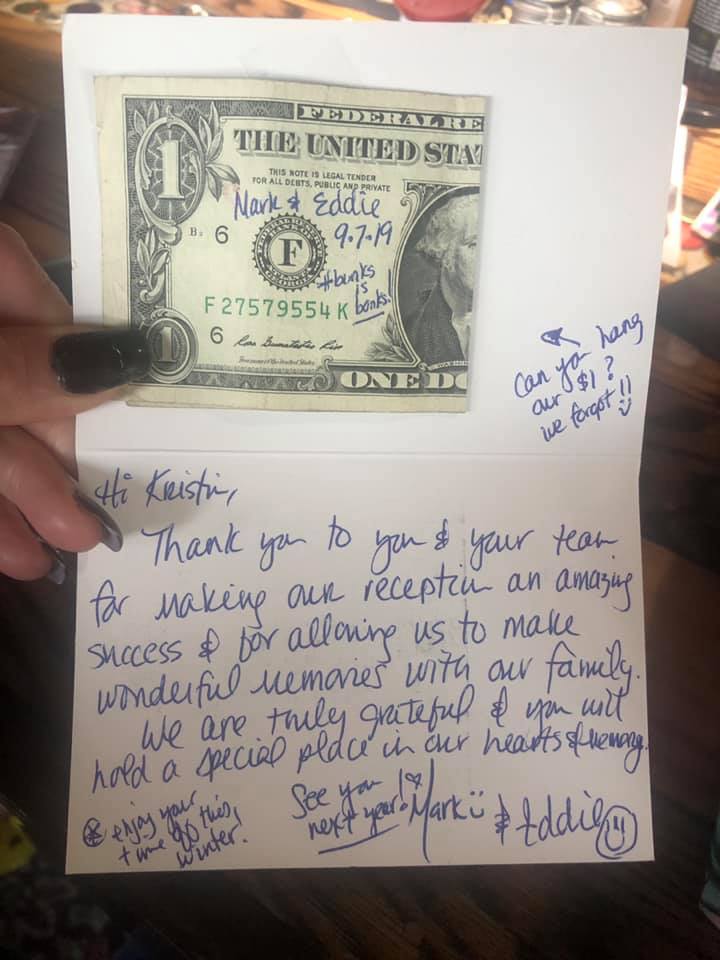 FEDERAL RE
THE UNITED STA
THIS NOTE IS LEGAL TENDER
FOR ALL DEBTS, PUBLIC AND PRIVATE
Mark & Eddie
B 6
9.7.19
F
#bunks
is
bonks!
F 27579554 K
6
1
1
ONE DO
Can you hang
our $1?
we forgot!!
Hi Kristin,
Thank you to you & your team
for making our reception an amazing
success & for allowing us to make
wonderful memories with our family.
We are truly grateful & you will
hold a special place in our hearts & memory.
enjoy your
time off this
winter!
See you
next year!
Mark
& Eddie